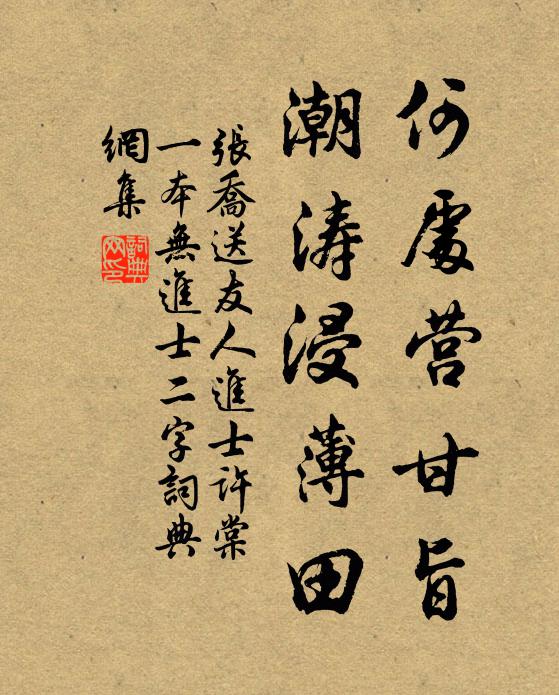 何處营甘旨
潮涛浸薄田
張喬送友人進士許棠
一本無進士二字詞典
網集
詞典
网印